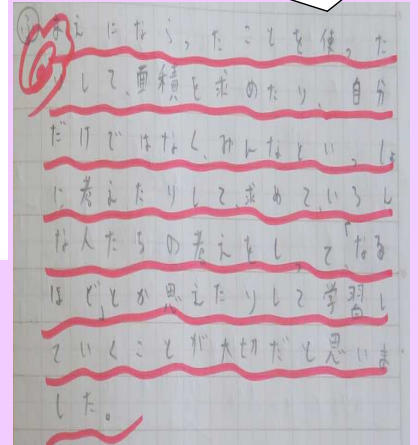 ふ まえにならったことを使った
りして、面積を求めたり、自分
だけではなく、みんなといっしょ
に考えたりして、求めて、いろん
な人たちの考えをしって、「なる
ほど」とか思えたりして学習し
ていくことが大切だと思いま
した。